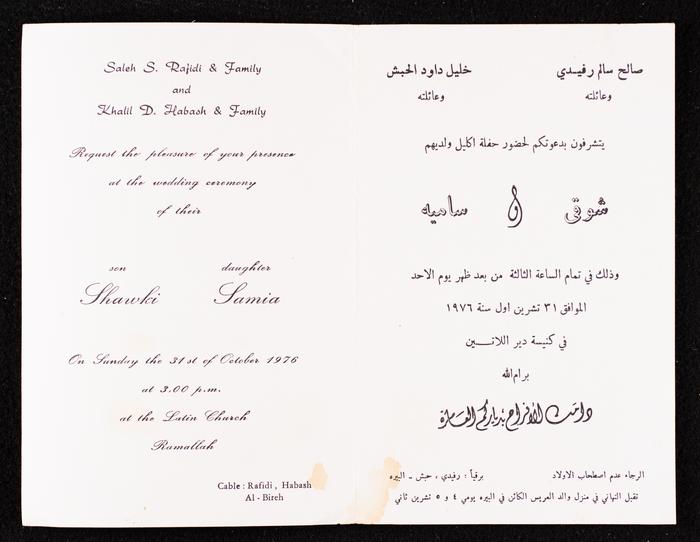 Saleh S. Rafidi & Family
and
Khalil D. Habash & Family
Request the pleasure of your presence
at the wedding ceremony
of their
son daughter
Shawki Samia
On Sunday the 31st of October 1976
at 3.00 p.m.
at the Latin Church
Ramallah
Cable : Rafidi , Habash
Al - Bireh
صالح سالم رفيدي خليل داود الحبش
وعائلته وعائلته
يتشرفون بدعوتكم لحضور حفلة اكليل ولديهم
شوقي و ساميه
وذلك في تمام الساعة الثالثة من بعد ظهر يوم الاحد
الموافق ٣١ تشرين اول سنة ١٩٧٦
في كنيسة دير اللاتين
برام الله
دامت الأفراح بدياركم العامرة
الرجاء عدم اصطحاب الاولاد برقياً : رفيدي ، حبش ـ البيره
تقبل التهاني في منزل والد العريس الكائن في البيره يومي ٤ و ٥ تشرين ثاني